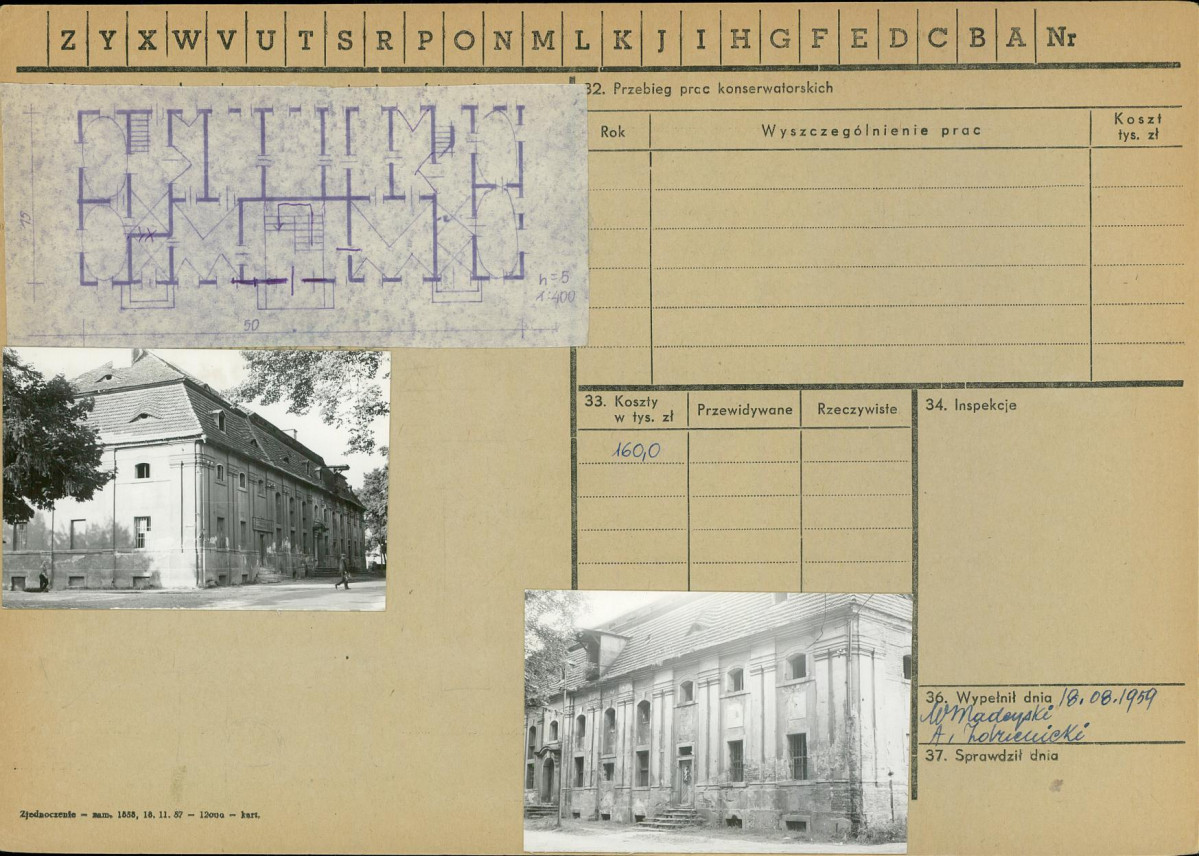 Z Y X W V U T S R P O N M L K J I H G F E D C B A Nr
32. Przebieg prac konserwatorskich
Rok
Wyszczególnienie prac
Koszt
tys. zł
15
50
h=5
1:400
33. Koszty
w tys. zł
Przewidywane
Rzeczywiste
160,0
34. Inspekcje
36. Wypełnił dnia 18.08.1959
W Madeyski
A.
37. Sprawdził dnia
Zjednoczenie — zam. 1558, 18. 11. 57 — 12000 — kart.